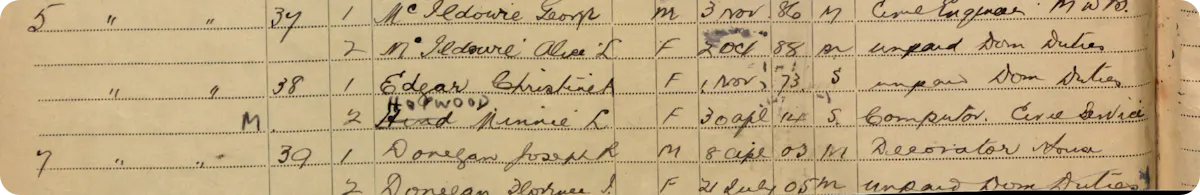 5 " " 37 1 McIldowie George M 3 Nov 86 M Civil Engineer M W B.
2 McIldowie Alice L F 2 Oct 88 M unpaid Dom Duties
" " 38 1 Edgar Christine A F 1 Nov 73 S unpaid Dom Duties
HOPWOOD
M 2 Hind Minnie L F 30 Apl 14 S. Computor. Civil Service
7 " " 39 1 Donegan Joseph R M 8 Apl 03 M Decorator House
2 Donegan Florence J. F 21 July 05 M unpaid Dom Duties